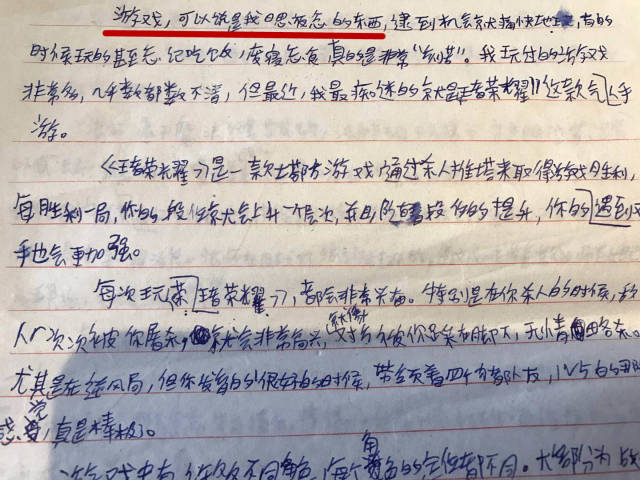 游戏，可以说是我日思夜想的东西，逮到机会就痛快地玩，有的
时候玩的甚至忘记吃饭，废寝忘食真的是非常“刻苦”。我玩过的游戏
非常多，几乎数都数不清，但最近，我最痴迷的就是《王者荣耀》这款气人手
游。
《王者荣耀》是一款士都方游戏通过杀人推塔来取得游戏胜利，
每胜利一局，你的段位就会上升一个层次，并且随着段位的提升，你的遇到对
手也会更加强。
每次玩荣王者荣耀》，都会非常兴奋。特别是在你杀人的时候，敌
人一次次被你屠杀，就会非常高兴，就像对方被你踩在脚下，无情的
尤其是在逆风局，但你发育的很好的时候，带领着四个队友，1V5的
感觉，真是棒极了。
游戏中有许多不同角色，每个角色的定位都不同。大部分为战